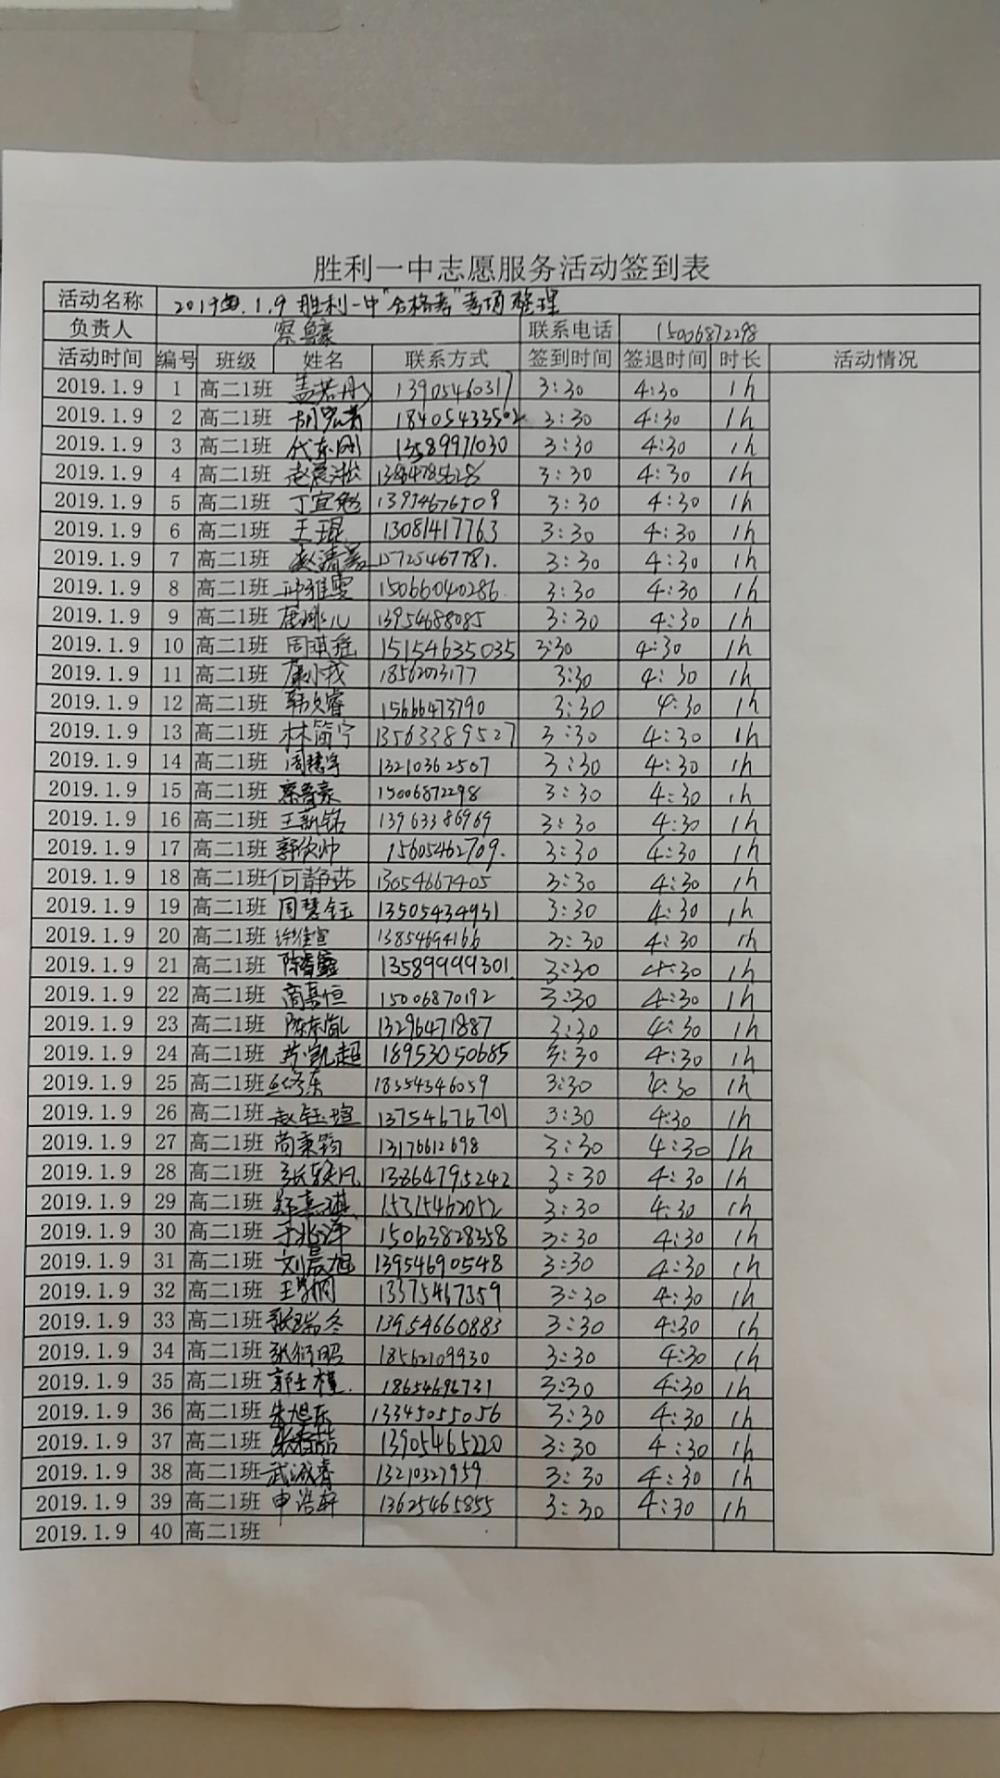 胜利一中志愿服务活动签到表
活动名称 2019.1.9 胜利一中"合格考"考项整理
负责人 联系电话 15006872298
活动时间 编号 班级 姓名 联系方式 签到时间 签退时间 时长 活动情况
2019.1.9 1 高二1班 盖若彤 13905460317 3:30 4:30 1h
2019.1.9 2 高二1班 18405433502 3:30 4:30 1h
2019.1.9 3 高二1班 代东刚 13589971030 3:30 4:30 1h
2019.1.9 4 高二1班 赵晨淞 3:30 4:30 1h
2019.1.9 5 高二1班 丁宜勉 13954676509 3:30 4:30 1h
2019.1.9 6 高二1班 王琨 13081417763 3:30 4:30 1h
2019.1.9 7 高二1班 15725467781. 3:30 4:30 1h
2019.1.9 8 高二1班 15066040286. 3:30 4:30 1h
2019.1.9 9 高二1班 13954688085 3:30 4:30 1h
2019.1.9 10 高二1班 周琪瑶 15154635035 3:30 4:30 1h
2019.1.9 11 高二1班 3:30 4:30 1h
2019.1.9 12 高二1班 韩久睿 15666473790 3:30 4:30 1h
2019.1.9 13 高二1班 林简宁 13563389527 3:30 4:30 1h
2019.1.9 14 高二1班 周慧宇 13210362507 3:30 4:30 1h
2019.1.9 15 高二1班 15006872298 3:30 4:30 1h
2019.1.9 16 高二1班 王新铭 13963386969 3:30 4:30 1h
2019.1.9 17 高二1班 郭欣帅 15605462709. 3:30 4:30 1h
2019.1.9 18 高二1班 何静茹 13054667405 3:30 4:30 1h
2019.1.9 19 高二1班 周慧钰 13505434931 3:30 4:30 1h
2019.1.9 20 高二1班 许维宣 13854694166 3:30 4:30 1h
2019.1.9 21 高二1班 13589999301 3:30 4:30 1h
2019.1.9 22 高二1班 商真恒 15006870192 3:30 4:30 1h
2019.1.9 23 高二1班 陈东凯 13296471887 3:30 4:30 1h
2019.1.9 24 高二1班 18953050685 3:30 4:30 1h
2019.1.9 25 高二1班 18554546059 3:30 4:30 1h
2019.1.9 26 高二1班 赵钰瑄 13754676701 3:30 4:30 1h
2019.1.9 27 高二1班 尚秉筠 13176612698 3:30 4:30 1h
2019.1.9 28 高二1班 13864795242 3:30 4:30 1h
2019.1.9 29 高二1班 郑嘉琪 15715462052 3:30 4:30 1h
2019.1.9 30 高二1班 于兆洋 15063828358 3:30 4:30 1h
2019.1.9 31 高二1班 刘晨旭 13954690548 3:30 4:30 1h
2019.1.9 32 高二1班 13375467359 3:30 4:30 1h
2019.1.9 33 高二1班 张瑞冬 13954660883 3:30 4:30 1h
2019.1.9 34 高二1班 张衍昭 18562109930 3:30 4:30 1h
2019.1.9 35 高二1班 郭士槿. 18654696731 3:30 4:30 1h
2019.1.9 36 高二1班 朱旭东 13345055056 3:30 4:30 1h
2019.1.9 37 高二1班 13905465220 3:30 4:30 1h
2019.1.9 38 高二1班 武诚睿 13210327959 3:30 4:30 1h
2019.1.9 39 高二1班 申浩轩 13625465855 3:30 4:30 1h
2019.1.9 40 高二1班